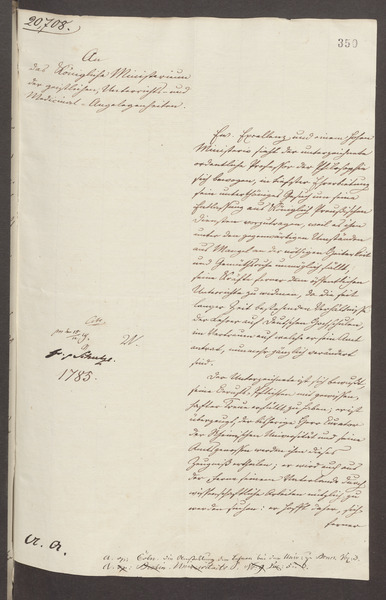 20,708.
350
An
das Königliche Ministerium
der geistlichen, Unterrichts- und
Medicinal-Angelegenheiten.
Ew. Excellenz und einem hohen
Ministerio sieht der unterzeichnete
ordentliche Professor der Philosophie
sich bewogen, in tiefster Ehrerbietung
sein unterthäniges Gesuch um seine
Entlassung aus Königlich Preußischen
Diensten vorzutragen, weil es ihm
unter den gegenwärtigen Umständen
aus Mangel an der nöthigen Heiterkeit
und Gemüthsruhe unmöglich fällt,
seine Kräfte ferner dem öffentlichen
Unterrichte zu widmen, da die seit
langer Zeit bestandenen Verhältnisse
der Lehrer auf Deutschen Hochschulen,
im Vertrauen auf welche er sein Amt
antrat, nunmehr gänzlich verändert
sind.
Der Unterzeichnete ist sich bewußt,
seine Berufs-Pflichten mit gewissen-
hafter Treue erfüllt zu haben; er ist
überzeugt, der bisherige Herr Curator
der Rheinischen Universität und seine
Amtsgenossen werden ihm dieses
Zeugniß ertheilen; er wird auch aus
der Ferne seinem Vaterlande durch
wissenschaftliche Arbeiten nützlich zu
werden suchen: er hofft daher, sich
ferner
1785.
a. a.